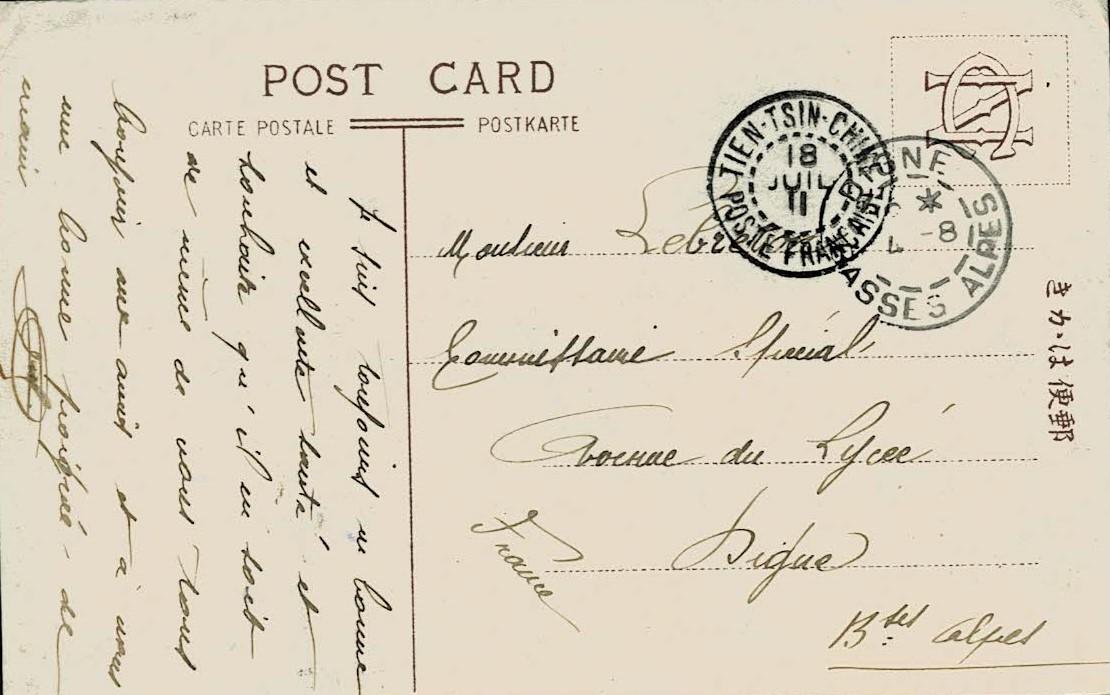 POST CARD
CARTE POSTALE POSTKARTE
TIEN-TSIN-CHINE
18
JUIL
11
POSTE FRANÇAISE
NE
*
4 -8
BASSES ALPES
Monsieur Lebre
Commissaire Spécial
Avenue du Lycée
Digne
Bses Alpes
France
きかは便郵
Je suis toujours en bonne
et excellente santé et
souhaite qu'il en soit
de même de vous tous
bonjour aux amis et à vous
une bonne poignée de
main